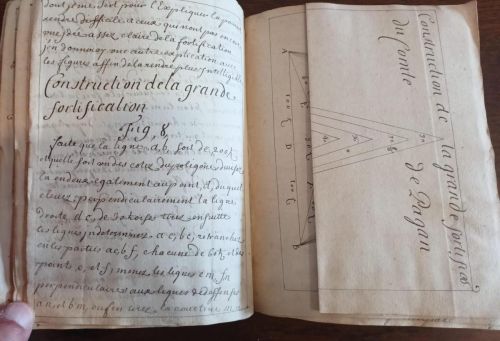 dont je me sert pour l'Expliquer la pouvoit
rendre difficile a ceux qui n'ont pas encore
une idée assez claire de la fortification
j'en donneray une autre explication avec
les figures affin de la rendre plus intelligible
Construction de la grande
fortification
Fig. 8
faite que la ligne a, b, soit de 200t
laquelle soit un des cotez du poligone divisez
la en deux egalement au point, d, duquel
elevez perpendiculairement la ligne
droite, d c, de 30 toises tirez ensuitte
les lignes indeterminez a c, b c, retranchez
en les parties a e, b f, chacune de 60t, et des
points e, et f, menez les lignes e m, f n
perpendiculaires aux lignes de deffenses
a n, et b m, enfin tirez la courtine m n
Construction de la grande fortificaõ
du Comte de Pagan
A
D
B